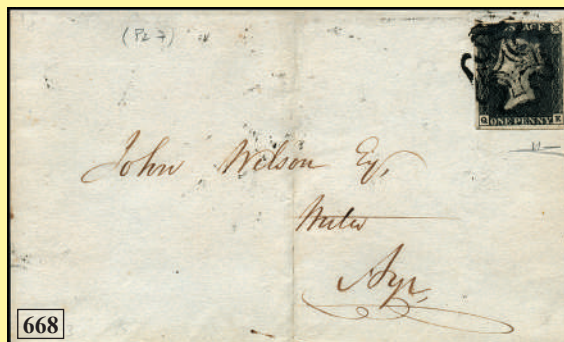 (Pl 7)
AGE
Q E
ONE PENNY
John Wilson Esq,
Writer
Ayr,
668